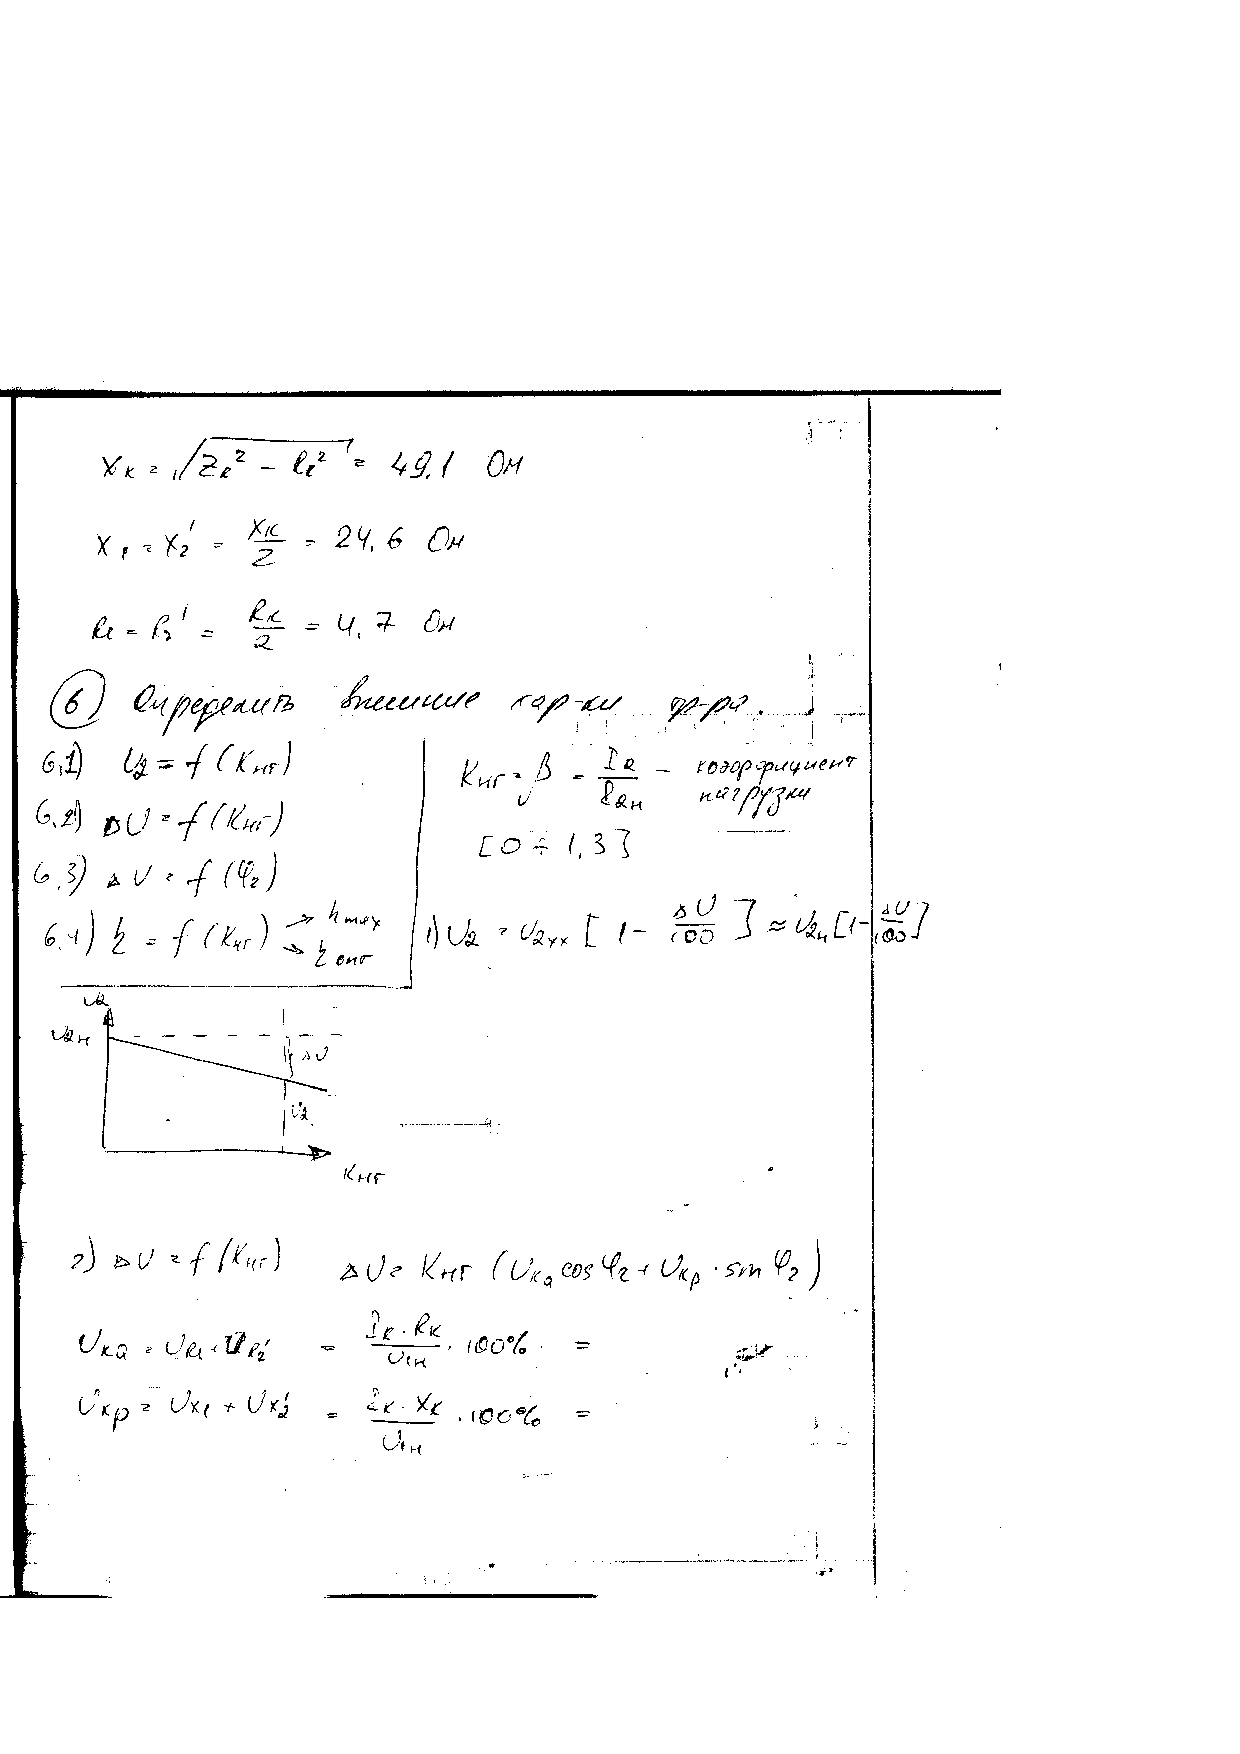 Xк = √(Zк² − Rк²) = 49,1 Ом
X₁ = X₂' = Xк/2 = 24,6 Ом
R₁ = R₂' = Rк/2 = 4,7 Ом
6) Определить внешние хар-ки тр-ра.
6,1) U₂ = f (Kнг)
6,2) ΔU = f (Kнг)
6,3) ΔU = f (φ₂)
6,4) η = f (Kнг) → η max → η опт
Kнг = β = I₂/I₂н – коэффициент нагрузки
[0 ÷ 1,3]
1) U₂ = U₂хх [1 − ΔU/100] ≈ U₂н [1 − ΔU/100]
U₂
U₂н
ΔU
U₂
Kнг
2) ΔU = f (Kнг) ΔU = Kнг (Uка cos φ₂ + Uкр · sin φ₂)
Uка = UR₁ + UR₂' = Iк · Rк/U₁н · 100% =
Uкр = Ux₁ + Ux₂' = Iк · Xк/U₁н · 100% =